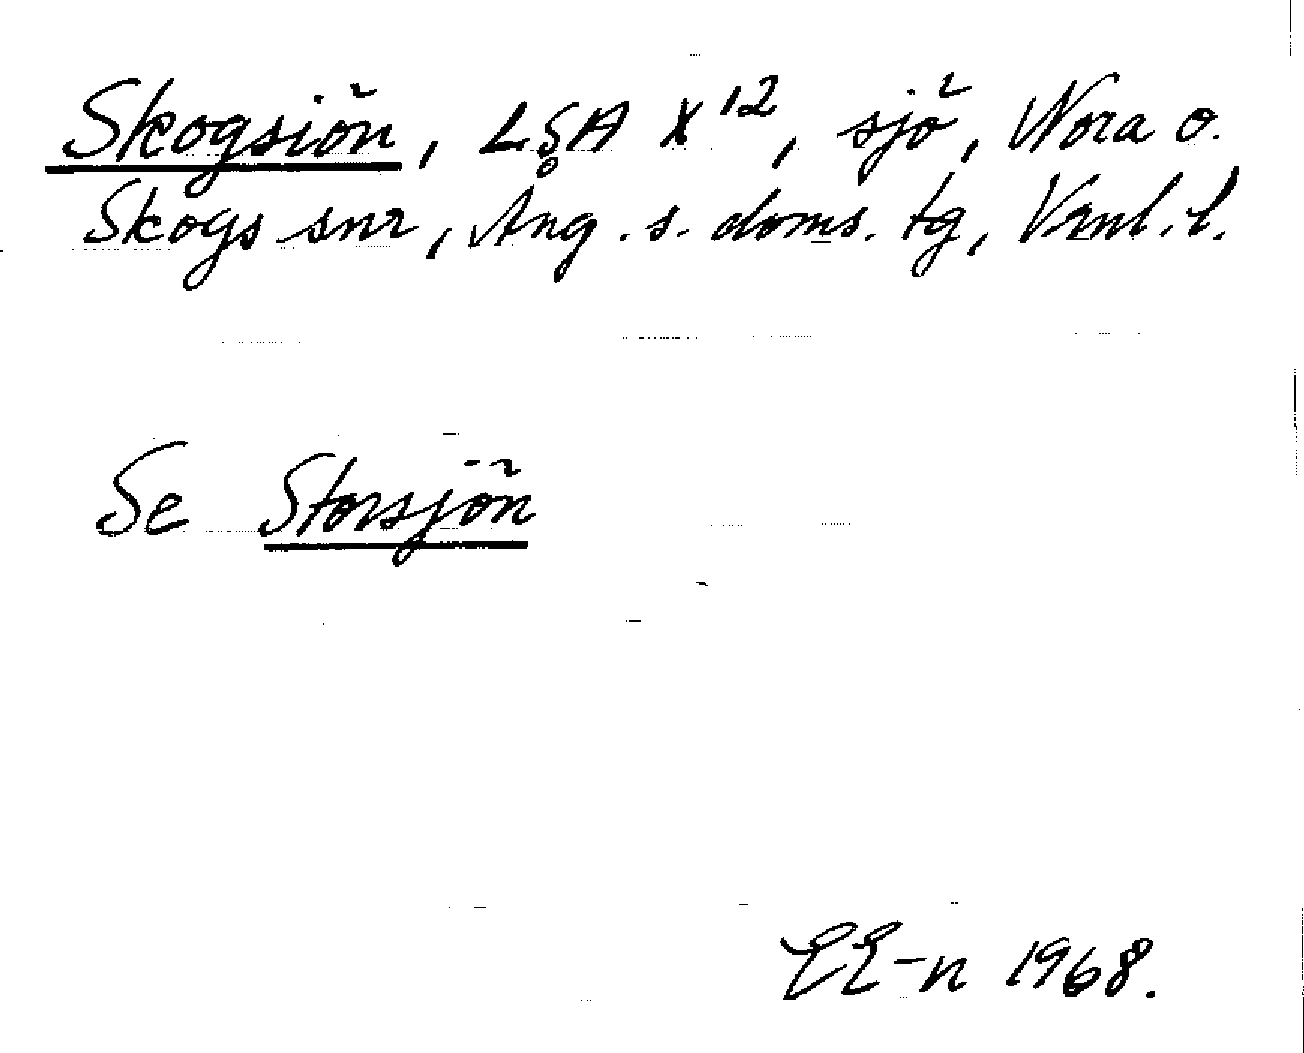 Skogsiön, LSA X¹², sjö, Nora o.
Skogs snr, Ång. s. doms. tg, Vrnl. l.
Se Storsjön
EE-n 1968.